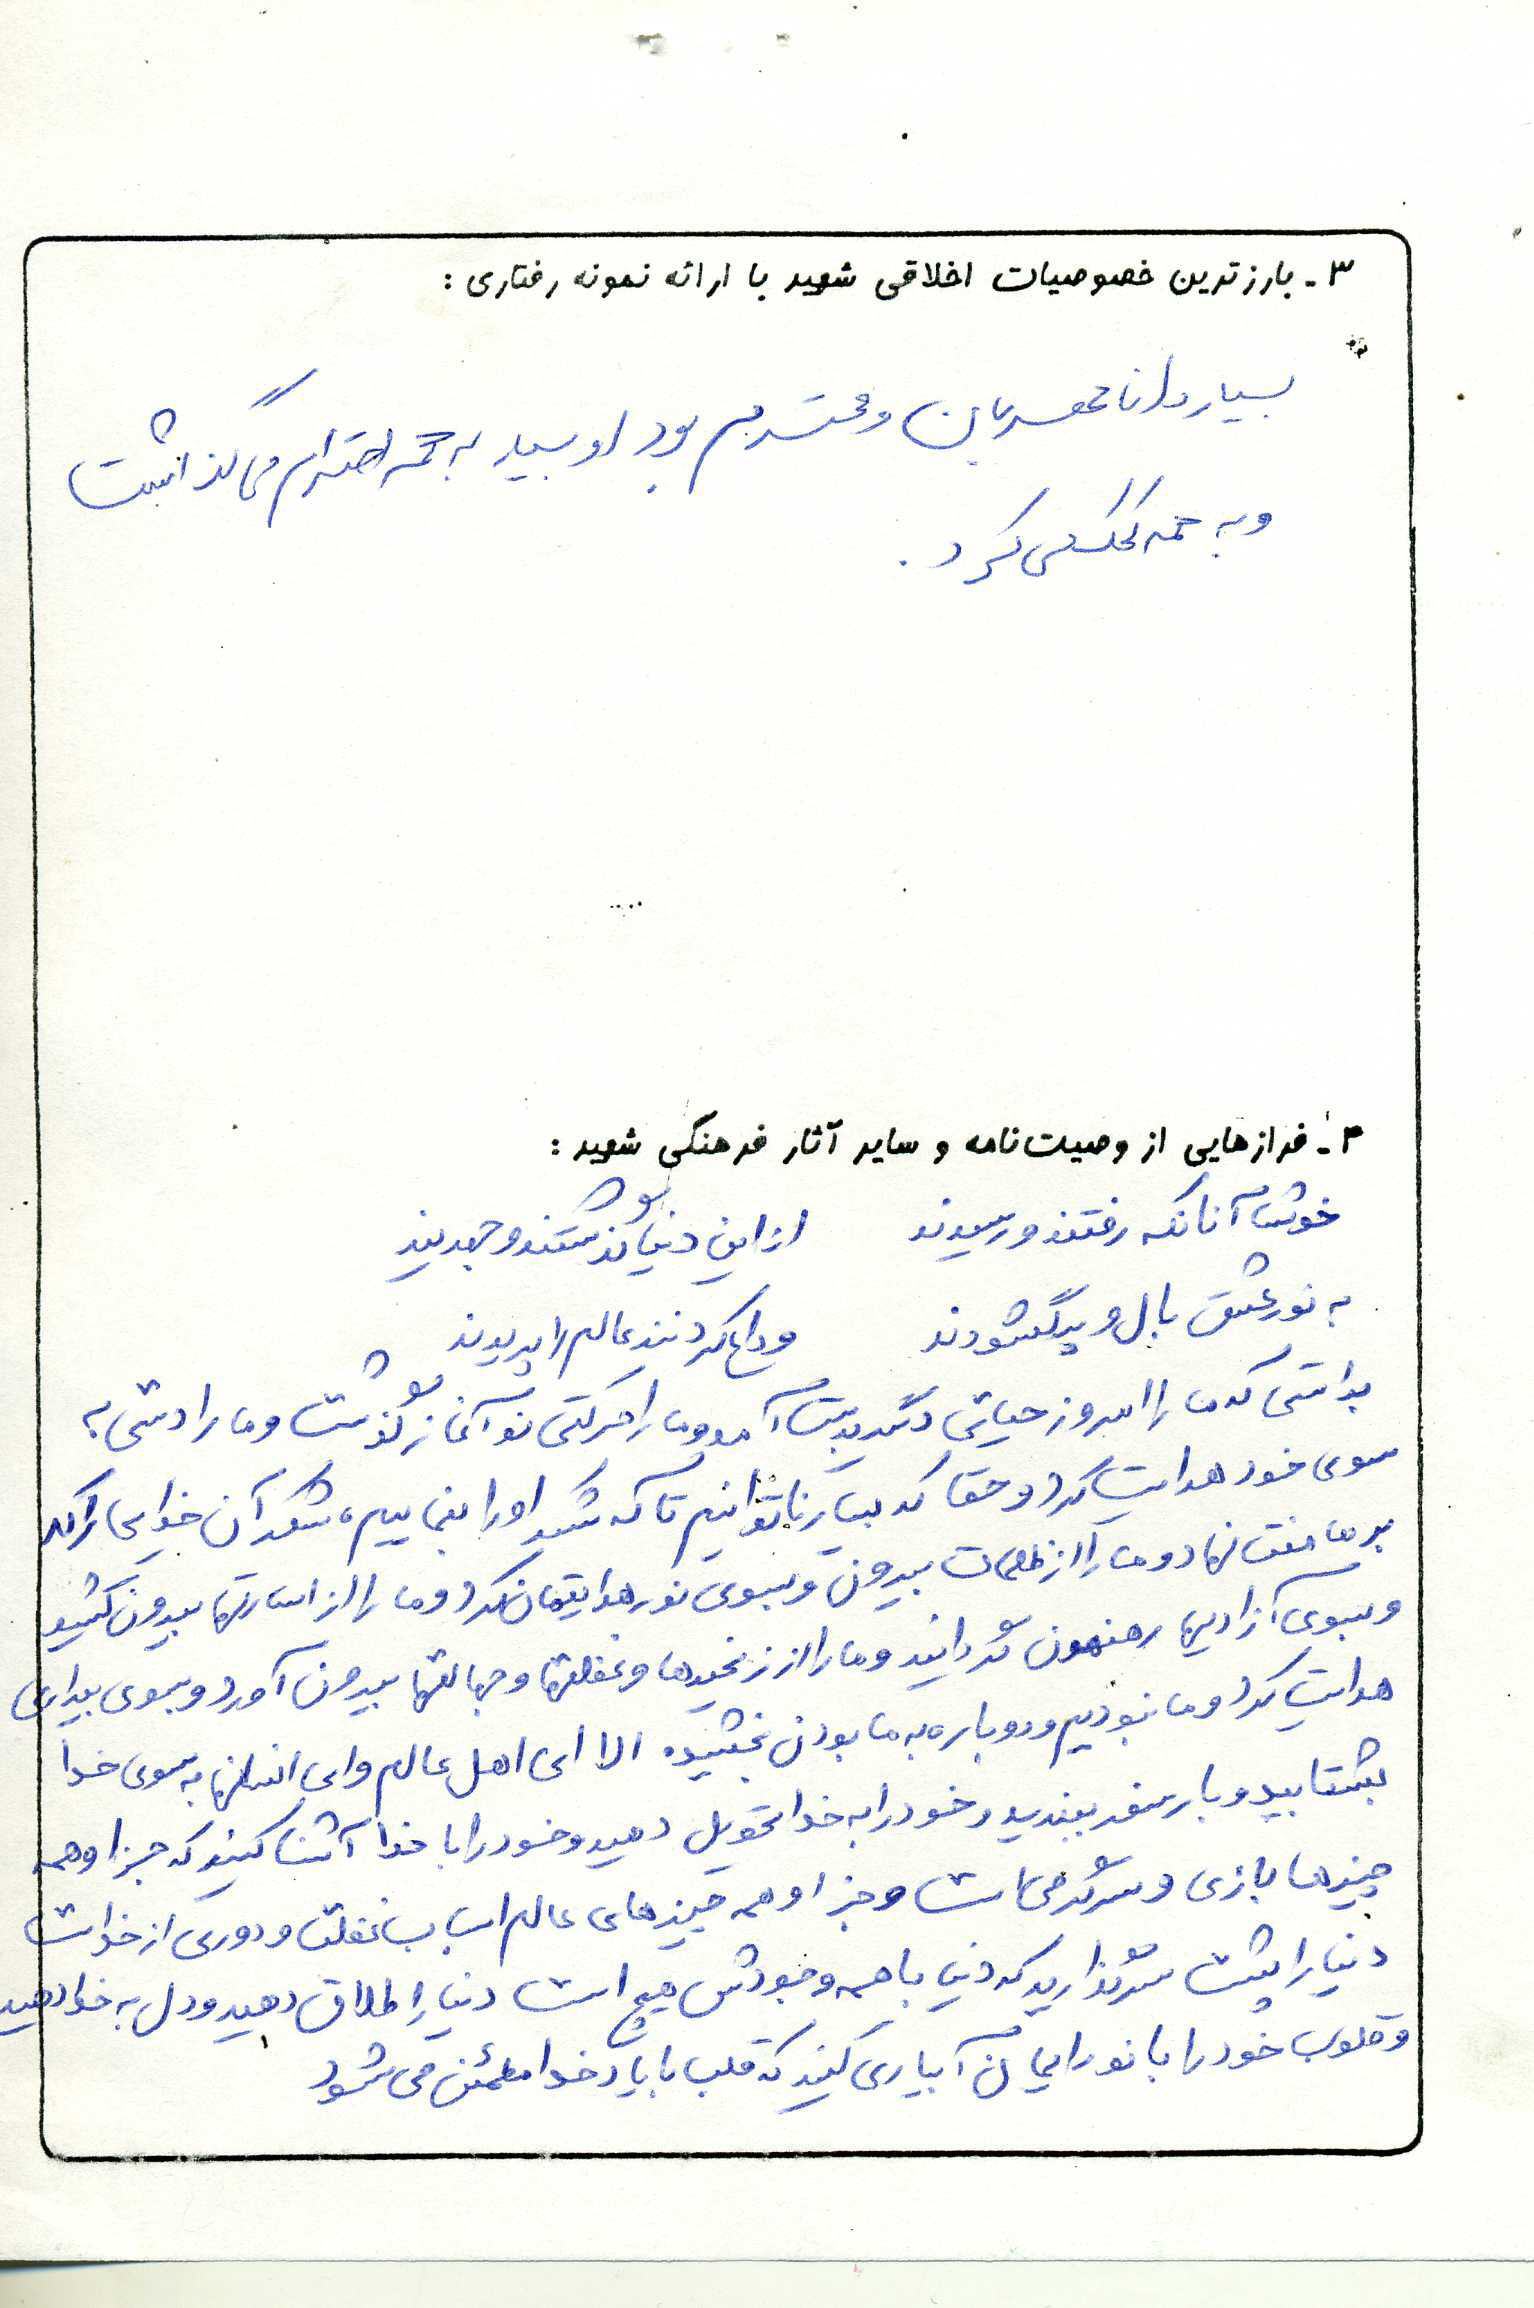 ۳ـ بارزترین خصوصیات اخلاقی شهید با ارائه نمونه رفتاری :
بسیار دانا مهربان و محترم بود او بسیار به همه احترام می گذاشت
و به همه کمک می کرد .
۴ـ فرازهایی از وصیت‌نامه و سایر آثار فرهنگی شهید :
خوشا آنانکه رفتند و رسیدند از این دنیا گذشتند و جهدیند
به نور عشق بال و پر گشودند وداع کردند عالم را پریدند
براستی که ما را امروز حیاتی دگر بدست آمد و ما را حرکتی نو آغاز گذشت و ما را دستی به
سوی خود هدایت کرد و حقا که بسیار ناتوانیم تا که شکر او را بنماییم، شکر آن خدایی را که
بر ما منت نهاد و ما را از ظلمات بیرون و بسوی نور هدایتمان کرد و ما را از اسارتها بیرون کشید
و بسوی آزادیها رهنمون گردانید و ما را از زنجیرها و غفلتها و جهالتها بیرون آورد و بسوی بیداری
هدایت کرد و ما نبودیم و دوباره به ما بودن بخشید. الا ای اهل عالم و ای انسانها به سوی خدا
بشتابید و بار سفر ببندید و خود را به خدا تحویل دهید و خود را با خدا آشنا کنید که جز او همه
چیزها بازی و سرگرمی است و جز او همه چیزهای عالم اسباب غفلت و دوری از خداست
دنیا را پشت سر گذارید که دنیا با همه وجودش هیچ است دنیا را طلاق دهید و دل به خدا دهید
و قلوب خود را با نور ایمان آبیاری کنید که قلب با یاد خدا مطمئن می شود